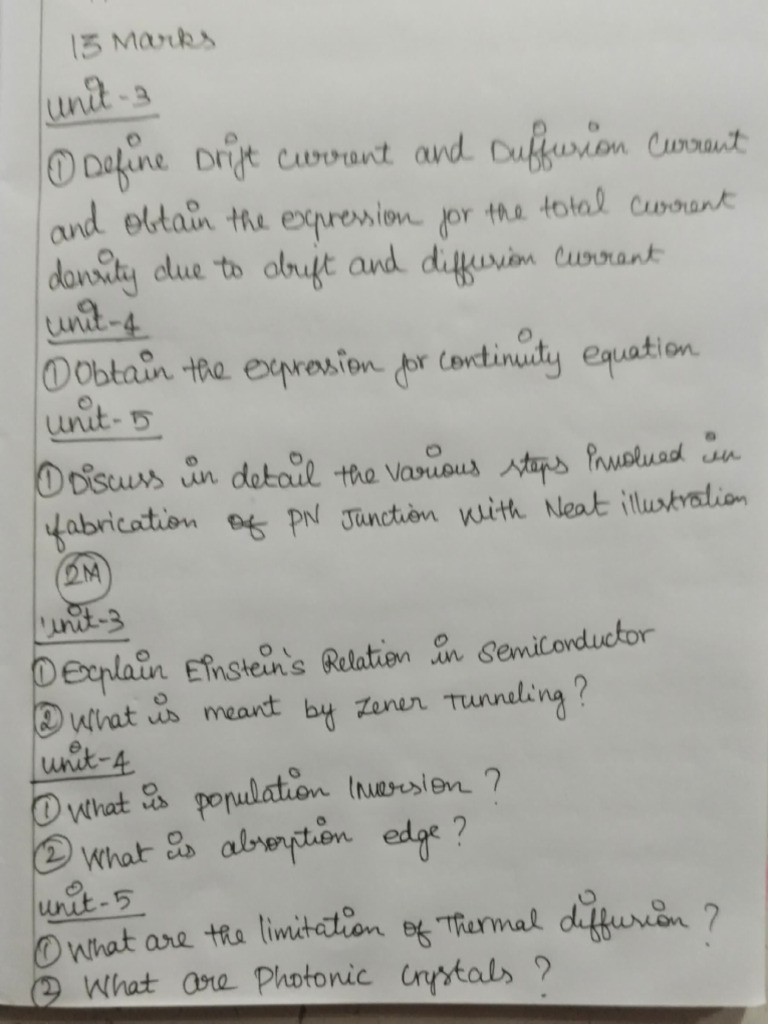 13 Marks
unit-3
① Define Drift current and Duffusion Current
and obtain the expression for the total current
density due to drift and diffusion current
unit-4
① Obtain the expression for continuity equation
unit-5
① Discuss in detail the various steps Involued in
fabrication of PN Junction with Neat illustration
2M
unit-3
① Explain Einstein's Relation in semiconductor
② What is meant by zener Tunneling?
unit-4
① What is population Inversion?
② What is absorption edge?
unit-5
① What are the limitation of Thermal diffusion?
② What are Photonic Crystals?